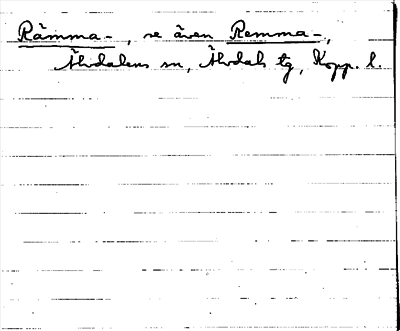 Rämma-, se även Remma-,
Älvdalens sn, Älvdals tg, Kopp. l.